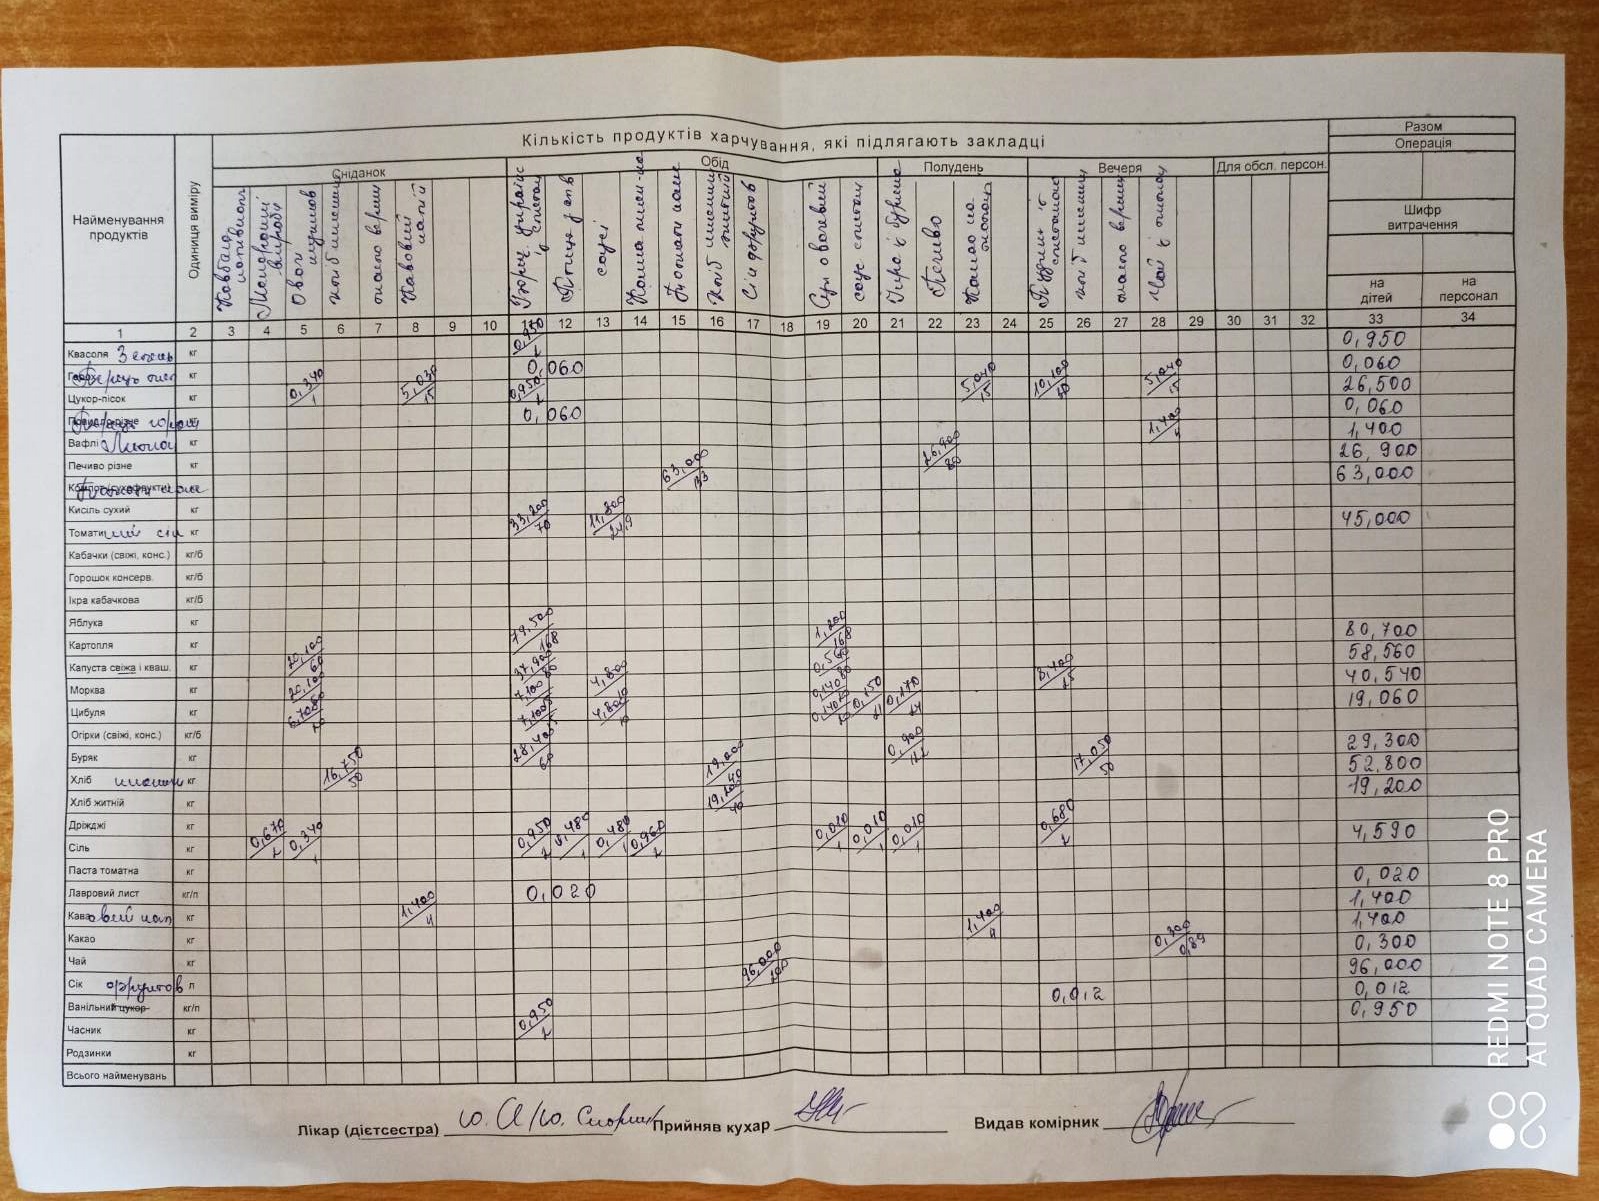 Кількість продуктів харчування, які підлягають закладці
Разом
Операція
Найменування продуктів
Одиниця виміру
Сніданок
Обід
Полудень
Вечеря
Для обсл. персон.
Шифр витрачення
на дітей
на персонал
Ковбаса
Макаронні вироби
Овочі
хліб пшенич
масло верш
Кавовий напій
Птиця
соус
Каша
хліб житній
Сік фруктов
соус сметан
Печиво
Какао
хліб пшенич
масло верш
Чай з лимоном
1 2 3 4 5 6 7 8 9 10 11 12 13 14 15 16 17 18 19 20 21 22 23 24 25 26 27 28 29 30 31 32 33 34
Квасоля кг 0,950 0,950
кг 0,060 0,060
Цукор-пісок кг 0,340/1 5,030/15 0,950/2 5,040/15 10,100/30 5,040/15 26,500
кг 0,060 0,060
Вафлі Лимон кг 1,400/4 1,400
Печиво різне кг 26,900/80 26,900
63,000 63,000
Кисіль сухий кг
Томатний сік кг 33,200/70 11,800 45,000
Кабачки (свіжі, конс.) кг/б
Горошок консерв. кг/б
Ікра кабачкова кг/б
Яблука кг
Картопля кг 79,500/168 1,200/168 80,700
Капуста свіжа і кваш. кг 20,100/60 37,900/80 0,560 58,560
Морква кг 20,100 7,100 4,800 0,140 8,400/25 40,540
Цибуля кг 7,100 4,800/10 0,140 0,150 0,170 19,060
Огірки (свіжі, конс.) кг/б
Буряк кг 28,400/60 0,900 29,300
Хліб пшенич кг 16,750/50 19,200/40 17,050/50 52,800
Хліб житній кг 19,200/40 19,200
Дріжджі кг
Сіль кг 0,670/2 0,340/1 0,950/2 0,480/1 0,480/1 0,960/2 0,010/1 0,010/1 0,010/1 0,680/2 4,590
Паста томатна кг
Лавровий лист кг/п 0,020 0,020
Кавовий нап кг 1,400/4 1,400
Какао кг 1,400/4 1,400
Чай кг 0,300/0,89 0,300
Сік фруктов л 96,000/200 96,000
Ванільний цукор кг/п 0,012 0,012
Часник кг 0,950/2 0,950
Родзинки кг
Всього найменувань
Лікар (дієтсестра) Прийняв кухар Видав комірник
REDMI NOTE 8 PRO
AI QUAD CAMERA